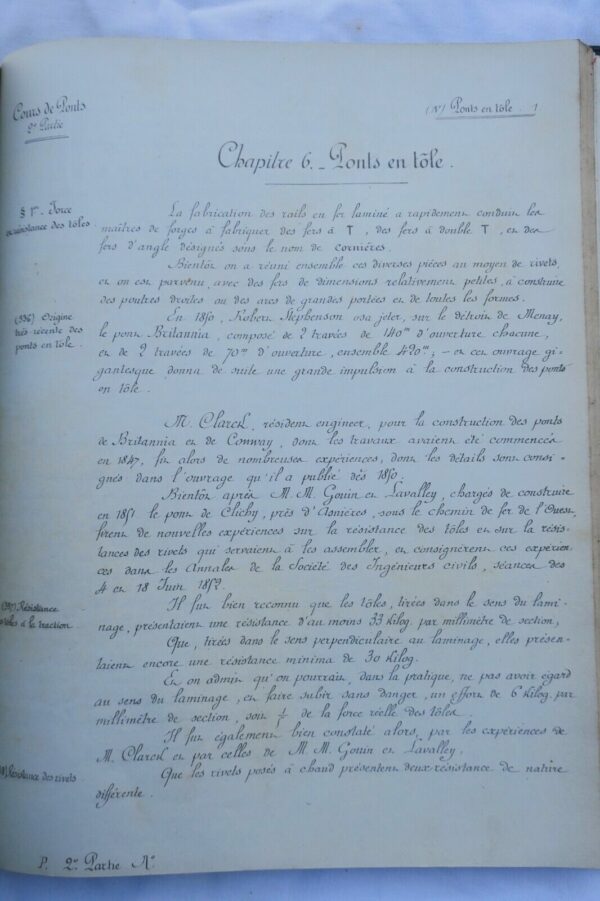 Cours de Ponts
2e Partie
(N) Ponts en tôle. 1
Chapitre 6. - Ponts en tôle.
§ 1er. Force
et résistance des tôles
La fabrication des rails en fer laminé a rapidement conduit les
maîtres de forges à fabriquer des fers à T, des fers à double T, et des
fers d'angle désignés sous le nom de cornières.
Bientôt on a réuni ensemble ces diverses pièces au moyen de rivets,
et on est parvenu, avec des fers de dimensions relativement petites, à construire
des poutres droites ou des arcs de grandes portées et de toutes les formes.
(336) Origine
très récente des
ponts en tôle.
En 1850, Robert Stephenson osa jeter, sur le détroit de Menay,
le pont Britannia, composé de 2 travées de 140m d'ouverture chacune,
et de 2 travées de 70m d'ouverture, ensemble 420m; - et cet ouvrage gi-
gantesque donna de suite une grande impulsion à la construction des ponts
en tôle.
M. Clarck, résident engineer, pour la construction des ponts
de Britannia et de Conway, dont les travaux avaient été commencés
en 1847, fit alors de nombreuses expériences, dont les détails sont consi-
gnés dans l'ouvrage qu'il a publié dès 1850.
Bientôt après M. M. Gouin et Lavalley, chargés de construire
en 1851 le pont de Clichy, près d'Asnières, sous le chemin de fer de l'Ouest,
firent de nouvelles expériences sur la résistance des tôles et sur la résis-
tances des rivets qui servaient à les assembler, et consignèrent ces expérien-
ces dans les Annales de la Société des Ingénieurs civils, séances des
4 et 18 Juin 1852.
(337) Résistance
tôles à la traction.
Il fut bien reconnu que les tôles, tirées dans le sens du lami-
nage, présentaient une résistance d'au moins 33 kilog. par millimètre de section,
Que, tirées dans le sens perpendiculaire au laminage, elles présen-
taient encore une résistance minima de 30 kilog.
Et on admit qu'on pourrait, dans la pratique, ne pas avoir égard
au sens du laminage, et faire subir sans danger, un effort de 6 kilog. par
millimètre de section, soit de la force réelle des tôles.
Il fut également bien constaté alors, par les expériences de
M. Clarck et par celles de M. M. Gouin et Lavalley.
Résistance des rivets
Que les rivets posés à chaud présentent deux résistance de nature
différente.
P. 2e Partie No